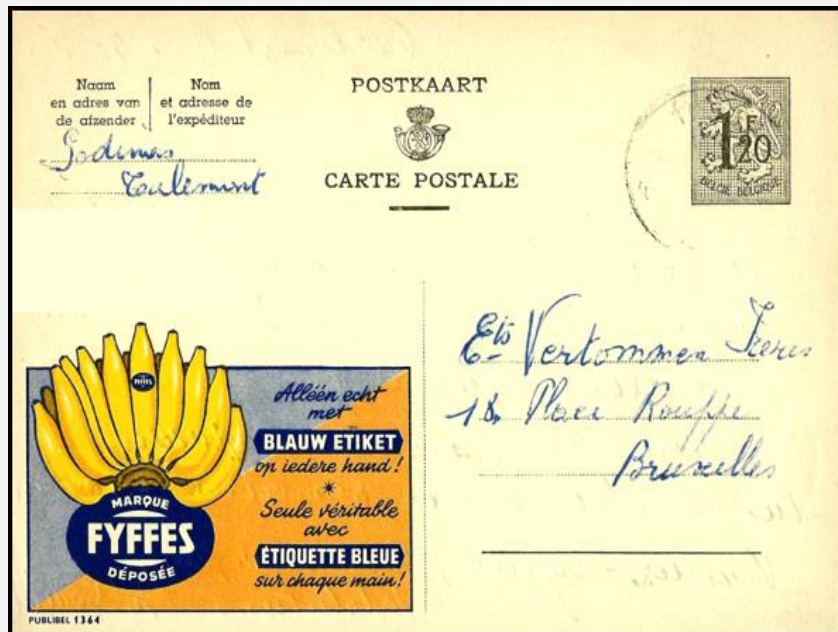 Naam
en adres van
de afzender
Nom
et adresse de
l'expéditeur
Tirlemont
POSTKAART
CARTE POSTALE
1F
20
BELGIE BELGIQUE
Ets Vertommen Frères
18, Place Rouppe
Bruxelles
FYFFES
MARQUE
FYFFES
DÉPOSÉE
Alléén echt
met
BLAUW ETIKET
op iedere hand!
Seule véritable
avec
ÉTIQUETTE BLEUE
sur chaque main!
PUBLIBEL 1364